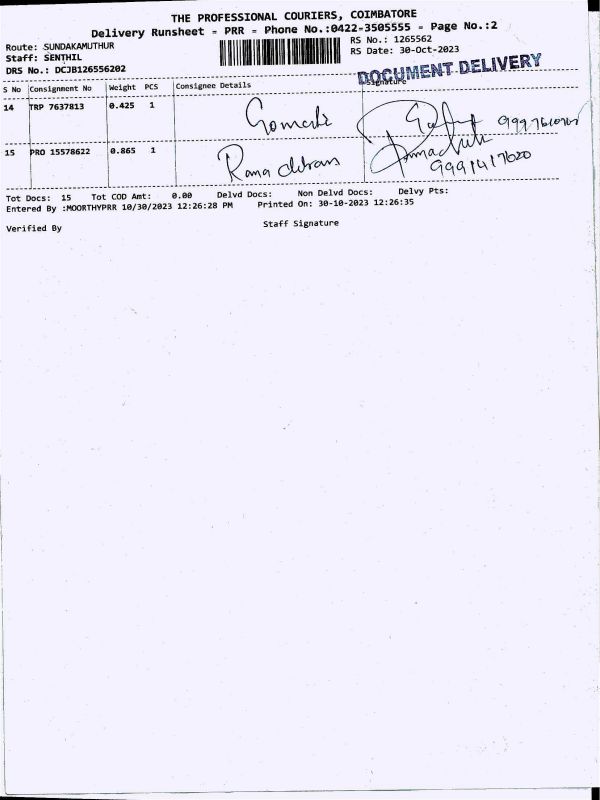 THE PROFESSIONAL COURIERS, COIMBATORE
Delivery Runsheet - PRR - Phone No.:0422-3505555 - Page No.:2
Route: SUNDAKAMUTHUR
RS No.: 1265562
Staff: SENTHIL
RS Date: 30-Oct-2023
DRS No.: DCJB126556202
DOCUMENT DELIVERY
S No Consignment No Weight PCS Consignee Details Signature
14 TRP 7637813 0.425 1
15 PRO 15578622 0.865 1
Tot Docs: 15 Tot COD Amt: 0.00 Delvd Docs: Non Delvd Docs: Delvy Pts:
Entered By :MOORTHYPRR 10/30/2023 12:26:28 PM Printed On: 30-10-2023 12:26:35
Verified By Staff Signature